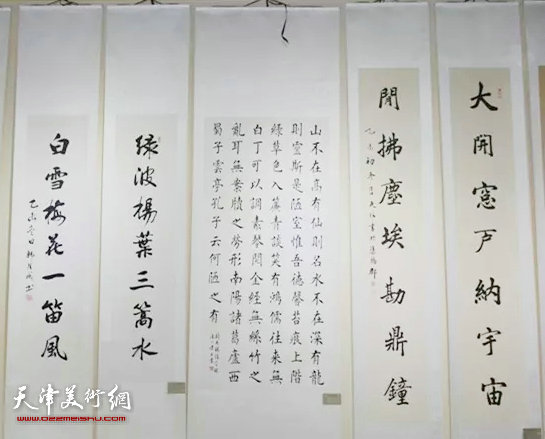 大開窓戸納宇宙
閒拂塵埃勘鼎鐘
山不在高有仙則名水不在深有龍
則靈斯是陋室惟吾德馨苔痕上階
綠草色入簾青談笑有鴻儒往來無
白丁可以調素琴閱金經無絲竹之
亂耳無案牘之勞形南陽諸葛廬西
蜀子雲亭孔子云何陋之有
绿波楊葉三篙水
白雪梅花一笛風
天津美術網
www.022meishu.com